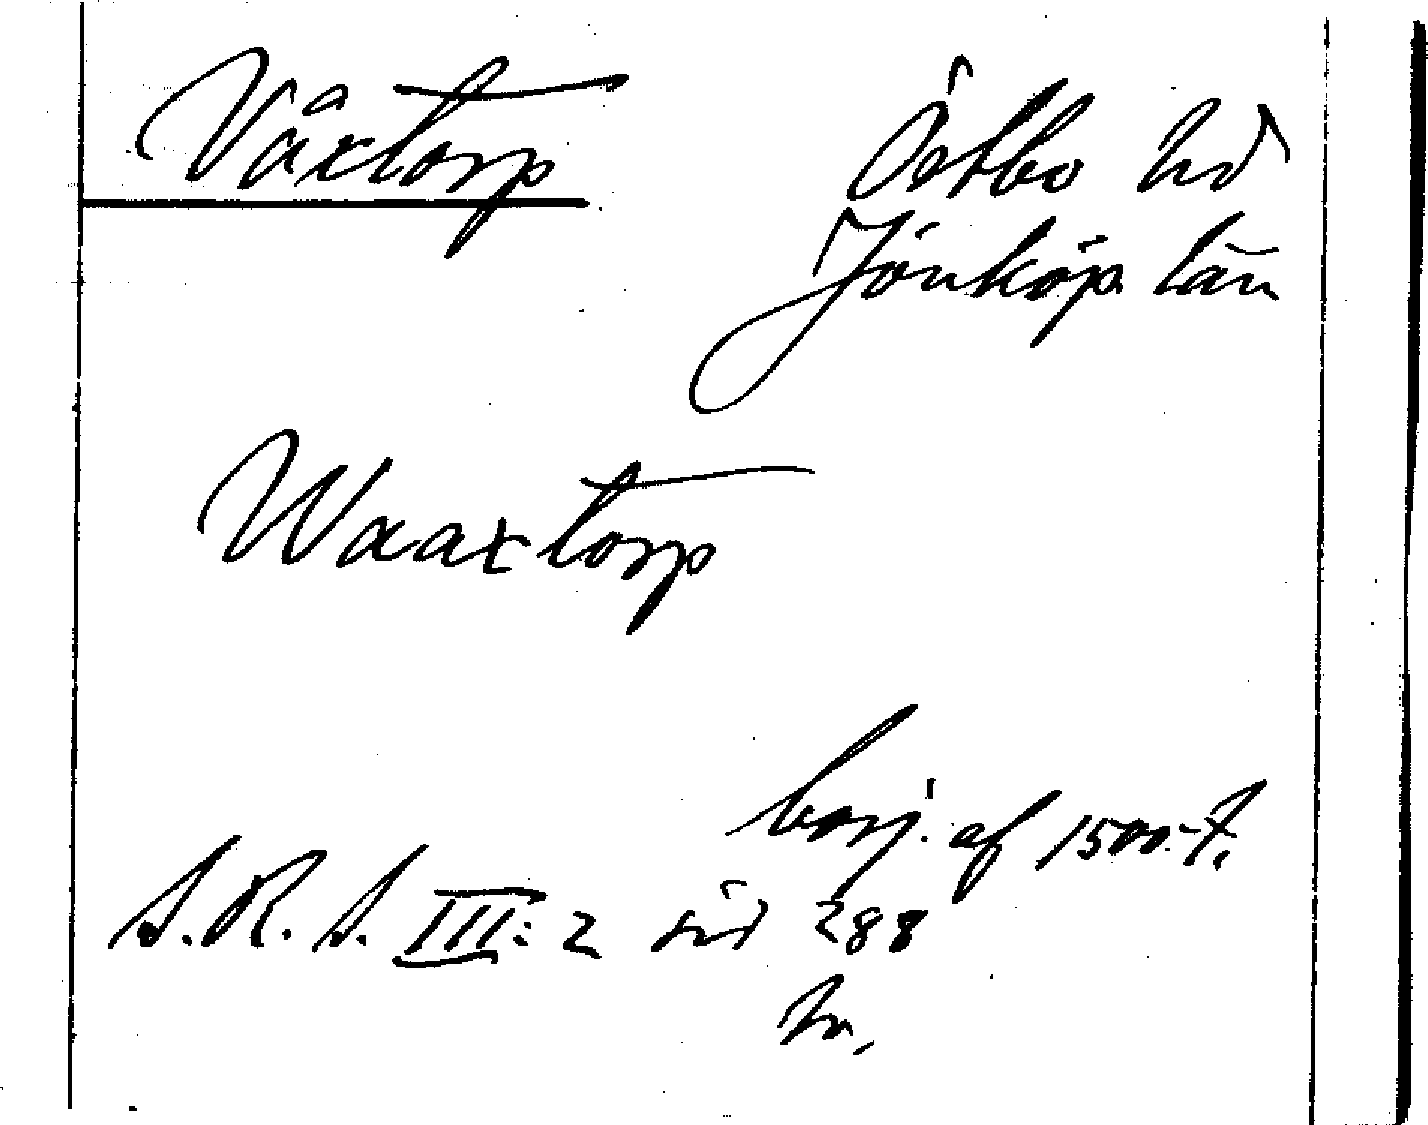 Våxtorp
Östbo hd
Jönköp. län
Waaxtorp
börj. af 1500-t.
S.R.S. III:2 sid 288